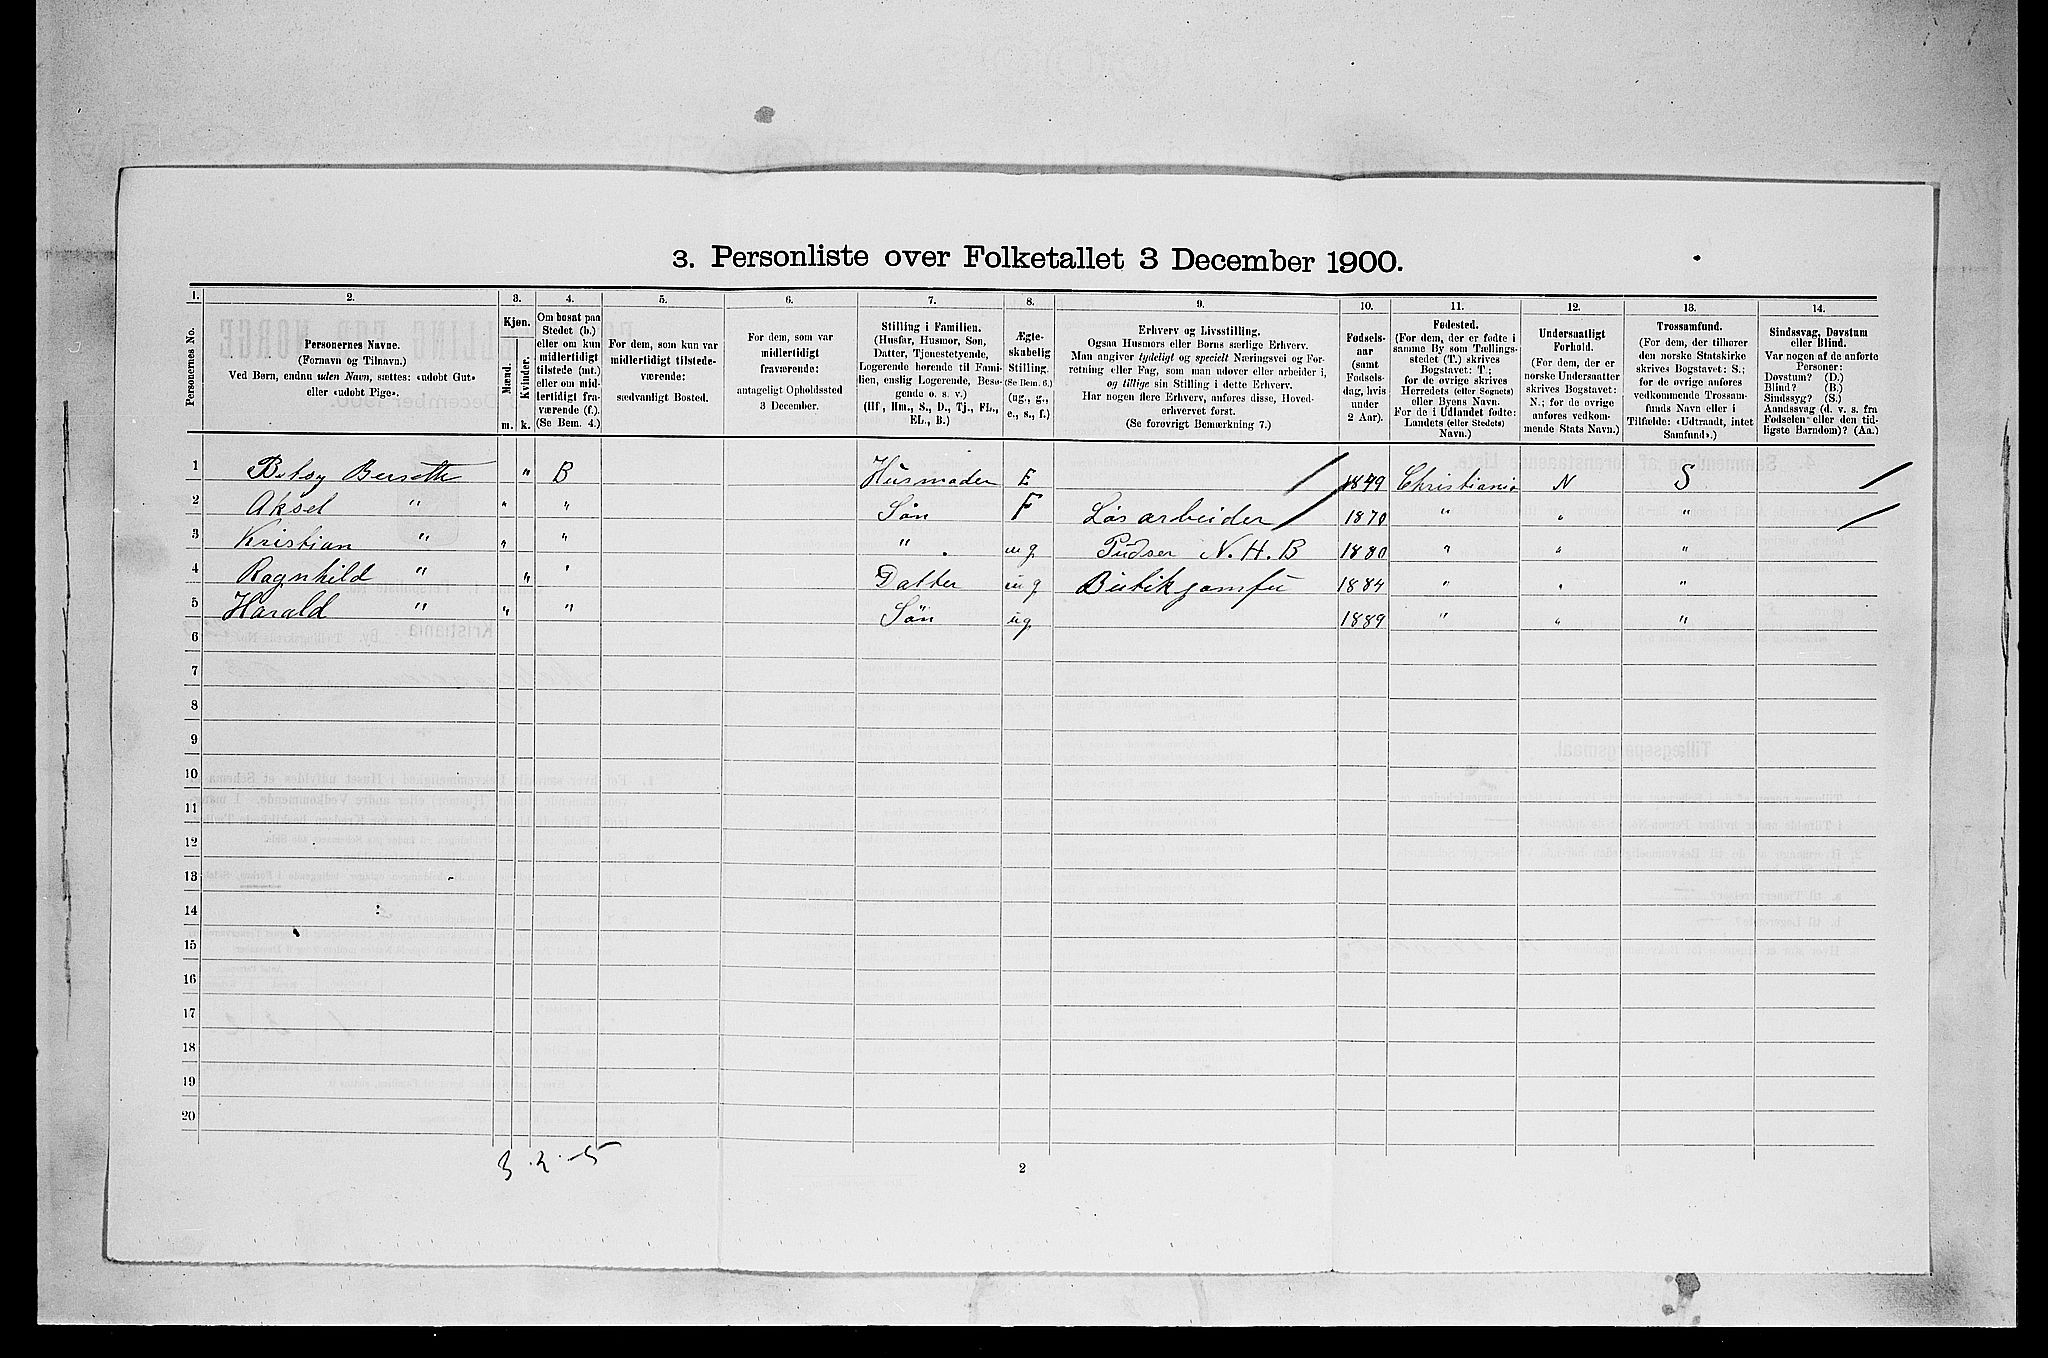 3. Personliste over Folketallet 3 December 1900.
1. 2. 3. 4. 5. 6. 7. 8. 9. 10. 11. 12. 13. 14.
Personernes No.
Personernes Navne.
(Fornavn og Tilnavn.)
Ved Børn, endnu uden Navn, sættes: «udøbt Gut»
eller «udøbt Pige».
Kjøn.
Mænd. Kvinder.
m. k.
Om bosat paa
Stedet (b.)
eller om kun
midlertidigt
tilstede (mt.)
eller om mid-
lertidigt fra-
værende (f.).
(Se Bem. 4.)
For dem, som kun var
midlertidigt tilstede-
værende:
sædvanligt Bosted.
For dem, som var
midlertidigt
fraværende:
antageligt Opholdssted
3 December.
Stilling i Familien.
(Husfar, Husmor, Søn,
Datter, Tjenestetyende,
Logerende hørende til Fami-
lien, enslig Logerende, Besø-
gende o. s. v.)
(Hf, Hm., S., D., Tj., FL.,
EL., B.)
Ægte-
skabelig
Stilling.
(Se Bem. 6.)
(ug., g.,
e., s., f.)
Erhverv og Livsstilling.
Ogsaa Husmors eller Børns særlige Erhverv.
Man angiver tydeligt og specielt Næringsvei og For-
retning eller Fag, som man udøver eller arbeider i,
og tillige sin Stilling i dette Erhverv.
Har nogen flere Erhverv, anføres disse, Hoved-
erhvervet først.
(Se forøvrigt Bemærkning 7.)
Fødsels-
aar
(samt
Fødsels-
dag, hvis
under
2 Aar).
Fødested.
(For dem, der er fødte i
samme By som Tællings-
stedet (T.) skrives
Bogstavet: T;
for de øvrige skrives
Herredets (eller Sognets)
eller Byens Navn.
For de i Udlandet fødte:
Landets (eller Stedets)
Navn.)
Undersaatligt
Forhold.
(For dem, der er
norske Undersaatter
skrives Bogstavet:
N.; for de øvrige
anføres vedkom-
mende Stats Navn.)
Trossamfund.
(For dem, der tilhører
den norske Statskirke
skrives Bogstavet: S.;
for de øvrige anføres
vedkommende Trossam-
funds Navn eller i
Tilfælde: «Udtraadt, intet
Samfund».)
Sindssvag, Døvstum
eller Blind.
Var nogen af de anførte
Personer:
Døvstum? (D.)
Blind? (B.)
Sindssyg? (S.)
Aandssvag (d. v. s. fra
Fødselen eller den tid-
ligste Barndom)? (Aa.)
1 Betsy Berseth " B Husmoder E 1849 Christiania N S
2 Aksel " " " Søn F Løsarbeider 1870 " " "
3 Kristian " " " " ug Pudser N. H. B 1880 " " "
4 Ragnhild " " " Datter ug Butikjomfru 1884 " " "
5 Harald " " " Søn ug. 1889 " " "
6
7
8
9
10
11
12
13
14
15
16
17
18
19
20
3 . 2 . - 5
2